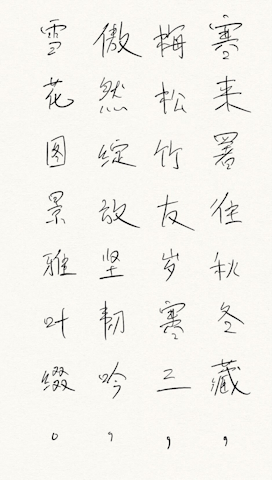 寒来署往秋冬藏，
梅松竹友岁寒三，
傲然绽放坚韧吟，
雪花图景雅叶缀。